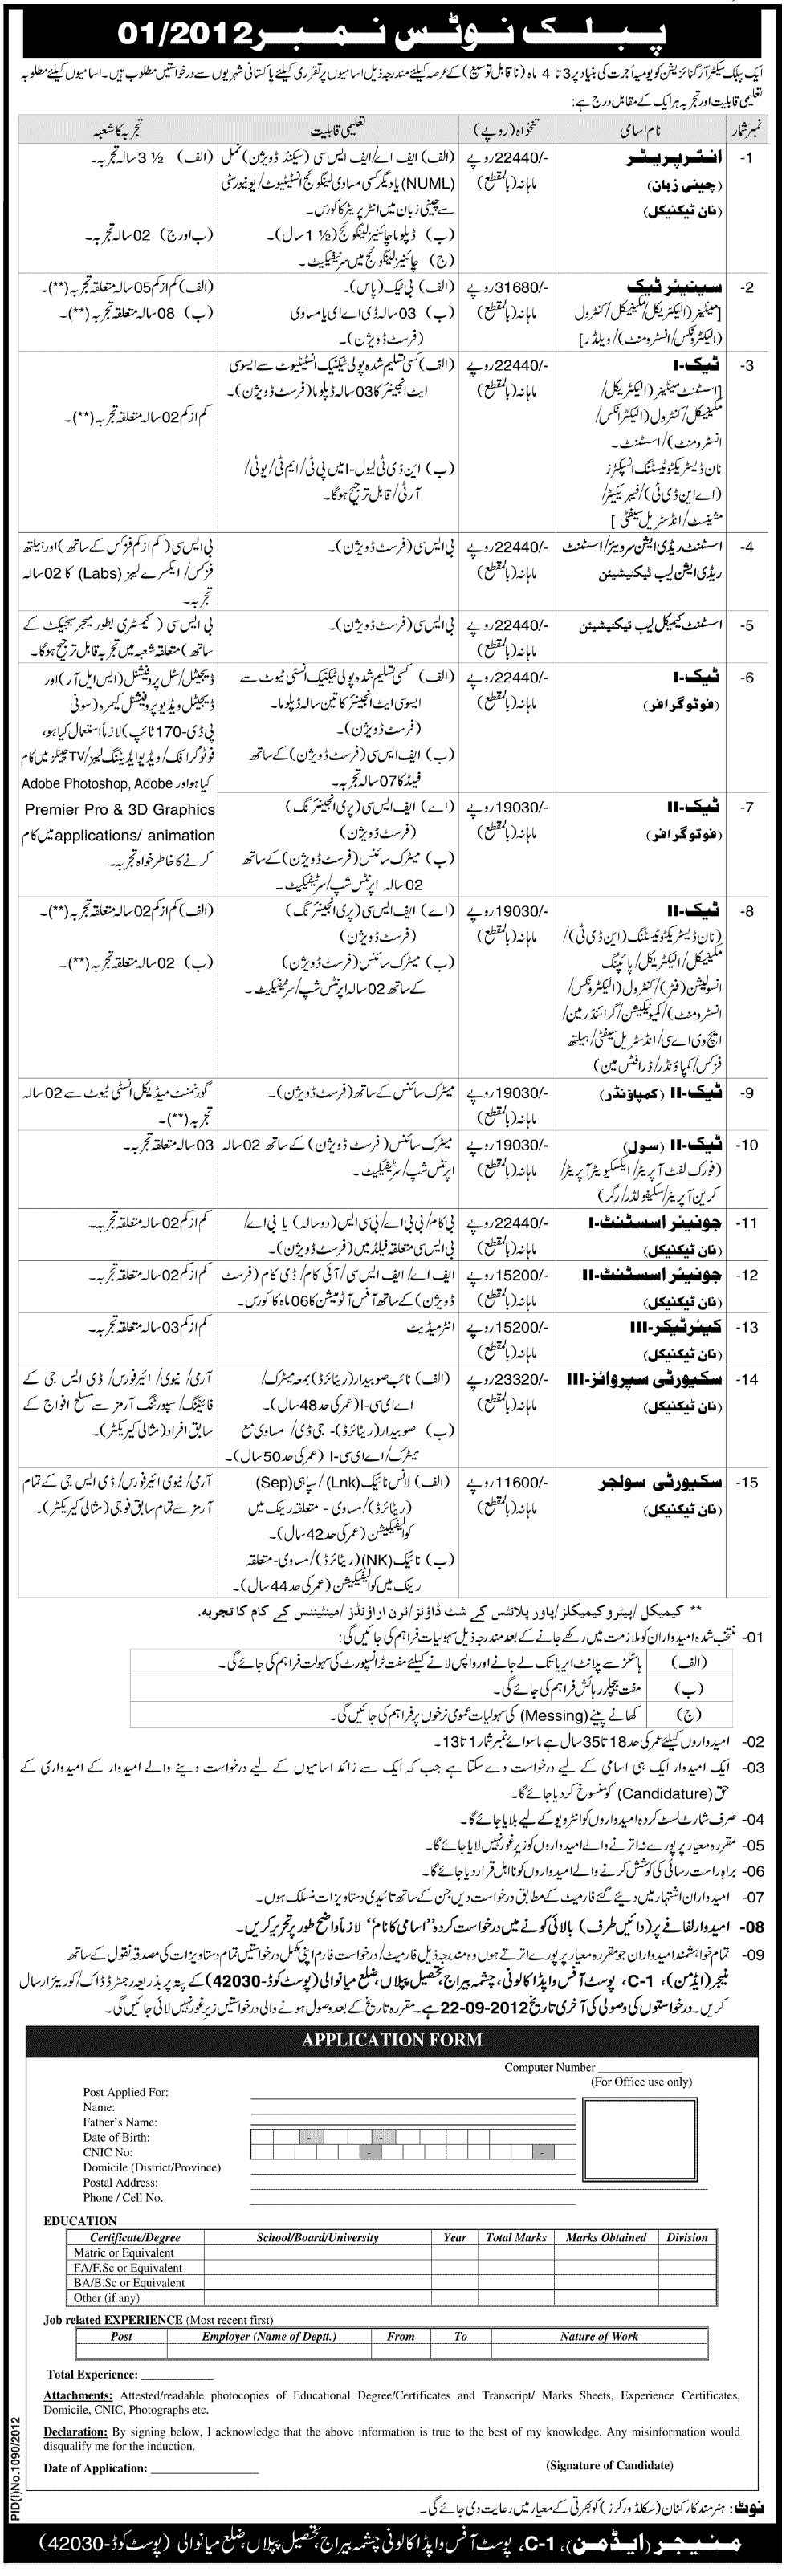 پبلک نوٹس نمبر 01/2012
ایک پبلک سیکٹر آرگنائزیشن کو یومیہ اُجرت کی بنیاد پر 3 تا 4 ماہ (ناقابل توسیع) کے عرصہ کیلئے مندرجہ ذیل اسامیوں پر تقرری کیلئے پاکستانی شہریوں سے درخواستیں مطلوب ہیں۔ اسامیوں کیلئے مطلوبہ
تعلیمی قابلیت اور تجربہ ہر ایک کے مقابل درج ہے:
نمبر شمار نام اسامی تنخواہ (روپے) تعلیمی قابلیت تجربہ کا شعبہ
1- انٹرپریٹر 22440/- روپے (الف) ایف اے/ایف ایس سی (سیکنڈ ڈویژن) نمل (الف) 3 ½ سالہ تجربہ۔
(چینی زبان) ماہانہ (بالمقطع) (NUML) یا دیگر کسی مساوی لینگوئج انسٹیٹیوٹ/یونیورٹی
(نان ٹیکنیکل) سے چینی زبان میں انٹرپریٹر کا کورس۔
(ب) ڈپلوما چائنیز لینگوئج (½ 1 سال)۔ (ب اور ج) 02 سالہ تجربہ۔
(ج) چائنیز لینگوئج میں سرٹیفکیٹ۔
2- سینیئر ٹیک 31680/- روپے (الف) بی ٹیک (پاس)۔ (الف) کم از کم 05 سالہ متعلقہ تجربہ (**)۔
[مینٹینر (الیکٹریکل/مکینیکل/کنٹرول ماہانہ (بالمقطع) (ب) 03 سالہ ڈی اے ای یا مساوی (ب) 08 سالہ متعلقہ تجربہ (**)۔
(الیکٹرونکس/انسٹرومنٹ)/ویلڈر] (فرسٹ ڈویژن)۔
3- ٹیک-I 22440/- روپے (الف) کسی تسلیم شدہ پولی ٹیکنیک انسٹیٹیوٹ سے ایسوسی
[اسسٹنٹ مینٹینر (الیکٹریکل/ ماہانہ (بالمقطع) ایٹ انجینئر کا 03 سالہ ڈپلوما (فرسٹ ڈویژن)۔
مکینیکل/کنٹرول (الیکٹرانکس/ کم از کم 02 سالہ متعلقہ تجربہ (**)۔
انسٹرومنٹ)/اسسٹنٹ۔
نان ڈیسٹریکٹو ٹیسٹنگ انسپکٹرز (ب) این ڈی ٹی لیول-I میں پی ٹی/ایم ٹی/یو ٹی/
(اے این ڈی ٹی)/فیبریکیٹر/ آر ٹی/قابل ترجیح ہوگا۔
مشینسٹ/انڈسٹریل سیفٹی]
4- اسسٹنٹ ریڈی ایشن سرویئر/اسسٹنٹ 22440/- روپے بی ایس سی (فرسٹ ڈویژن)۔ بی ایس سی (کم از کم فزکس کے ساتھ) اور ہیلتھ
ریڈی ایشن لیب ٹیکنیشیئن ماہانہ (بالمقطع) فزکس/ایکسرے لیبز (Labs) کا 02 سالہ
تجربہ۔
5- اسسٹنٹ کیمیکل لیب ٹیکنیشیئن 22440/- روپے بی ایس سی (فرسٹ ڈویژن)۔ بی ایس سی (کیمسٹری بطور میجر سبجیکٹ کے
ماہانہ (بالمقطع) ساتھ) متعلقہ شعبہ میں تجربہ قابل ترجیح ہوگا۔
6- ٹیک-I 22440/- روپے (الف) کسی تسلیم شدہ پولی ٹیکنیک انسٹی ٹیوٹ سے ڈیجیٹل/سٹل پروفیشنل (ایس ایل آر) اور
(فوٹو گرافر) ماہانہ (بالمقطع) ایسوسی ایٹ انجینئر کا تین سالہ ڈپلوما۔ ڈیجیٹل ویڈیو پروفیشنل کیمرہ (سونی
(فرسٹ ڈویژن)۔ پی ڈی-170 ٹائپ) لازماً استعمال کیا ہو،
(ب) ایف ایس سی (فرسٹ ڈویژن) کے ساتھ فوٹو گرافک/ویڈیو ایڈیٹنگ لیبز/TV چینلز میں کام
فیلڈ کا 07 سالہ تجربہ۔ کیا ہو اور Adobe Photoshop, Adobe
7- ٹیک-II 19030/- روپے (اے) ایف ایس سی (پری انجینئرنگ) Premier Pro & 3D Graphics
(فوٹو گرافر) ماہانہ (بالمقطع) (فرسٹ ڈویژن) applications/ animation میں کام
(ب) میٹرک سائنس (فرسٹ ڈویژن) کے ساتھ کرنے کا خاطر خواہ تجربہ۔
02 سالہ اپرنٹس شپ/سرٹیفکیٹ۔
8- ٹیک-II 19030/- روپے (اے) ایف ایس سی (پری انجینئرنگ) (الف) کم از کم 02 سالہ متعلقہ تجربہ (**)۔
(نان ڈیسٹریکٹو ٹیسٹنگ (این ڈی ٹی)/ ماہانہ (بالمقطع) (فرسٹ ڈویژن)
مکینیکل/الیکٹریکل/پائپنگ (ب) میٹرک سائنس (فرسٹ ڈویژن) (ب) 02 سالہ متعلقہ تجربہ (**)۔
انسولیشن (فٹر)/کنٹرول (الیکٹرونکس/ کے ساتھ 02 سالہ اپرنٹس شپ/سرٹیفکیٹ۔
انسٹرومنٹ)/کمیونیکیشن/گرائنڈر مین/
ایچ وی اے سی/انڈسٹریل سیفٹی/ہیلتھ
فزکس/کمپاؤنڈر/ڈرافٹس مین)
9- ٹیک-II (کمپاؤنڈر) 19030/- روپے میٹرک سائنس کے ساتھ (فرسٹ ڈویژن)۔ گورنمنٹ میڈیکل انسٹی ٹیوٹ سے 02 سالہ
ماہانہ (بالمقطع) تجربہ (**)۔
10- ٹیک-II (سول) 19030/- روپے میٹرک سائنس (فرسٹ ڈویژن) کے ساتھ 02 سالہ 03 سالہ متعلقہ تجربہ۔
(فورک لفٹ آپریٹر/ایکسکیویٹر آپریٹر/ ماہانہ (بالمقطع) اپرنٹس شپ/سرٹیفکیٹ۔
کرین آپریٹر/سکیفولڈر/رگر)
11- جونیئر اسسٹنٹ-I 22440/- روپے بی کام/بی بی اے/بی سی ایس (دو سالہ) یا بی اے/ کم از کم 02 سالہ متعلقہ تجربہ۔
(نان ٹیکنیکل) ماہانہ (بالمقطع) بی ایس سی متعلقہ فیلڈ میں (فرسٹ ڈویژن)۔
12- جونیئر اسسٹنٹ-II 15200/- روپے ایف اے/ایف ایس سی/آئی کام/ڈی کام (فرسٹ کم از کم 02 سالہ متعلقہ تجربہ۔
(نان ٹیکنیکل) ماہانہ (بالمقطع) ڈویژن) کے ساتھ آفس آٹومیشن کا 06 ماہ کا کورس۔
13- کیئرٹیکر-III 15200/- روپے انٹرمیڈیٹ کم از کم 03 سالہ متعلقہ تجربہ۔
(نان ٹیکنیکل) ماہانہ (بالمقطع)
14- سکیورٹی سپروائزر-III 23320/- روپے (الف) نائب صوبیدار (ریٹائرڈ) بمعہ میٹرک/ آرمی/نیوی/ائیرفورس/ڈی ایس جی کے
(نان ٹیکنیکل) ماہانہ (بالمقطع) اے ای سی-I (عمر کی حد 48 سال)۔ فائٹنگ/سپورٹنگ آرمز سے مسلح افواج کے
(ب) صوبیدار (ریٹائرڈ)- جی ڈی/مساوی مع سابق افراد (مثالی کیریکٹر)۔
میٹرک/اے ای سی-I (عمر کی حد 50 سال)۔
15- سکیورٹی سولجر 11600/- روپے (الف) لانس نائیک (Lnk)/سپاہی (Sep) آرمی/نیوی/ائیرفورس/ڈی ایس جی کے تمام
(نان ٹیکنیکل) ماہانہ (بالمقطع) (ریٹائرڈ)/مساوی - متعلقہ رینک میں آرمز سے تمام سابق فوجی (مثالی کیریکٹر)۔
کوالیفکیشن (عمر کی حد 42 سال)۔
(ب) نائیک (NK) (ریٹائرڈ)/مساوی-متعلقہ
رینک میں کوالیفکیشن (عمر کی حد 44 سال)۔
** کیمیکل/پیٹروکیمیکلز/پاور پلانٹس کے شٹ ڈاؤنز/ٹرن اراؤنڈز/مینٹیننس کے کام کا تجربہ۔
01- منتخب شدہ امیدواران کو ملازمت میں رکھے جانے کے بعد مندرجہ ذیل سہولیات فراہم کی جائیں گی:
(الف) ہاسٹلز سے پلانٹ ایریا تک لے جانے اور واپس لانے کیلئے مفت ٹرانسپورٹ کی سہولت فراہم کی جائے گی۔
(ب) مفت بیچلر رہائش فراہم کی جائے گی۔
(ج) کھانے پینے (Messing) کی سہولیات عمومی نرخوں پر فراہم کی جائیں گی۔
02- امیدواروں کیلئے عمر کی حد 18 تا 35 سال ہے ماسوائے نمبر شمار 1 تا 13۔
03- ایک امیدوار ایک ہی اسامی کے لیے درخواست دے سکتا ہے جب کہ ایک سے زائد اسامیوں کے لیے درخواست دینے والے امیدوار کے امیدواری کے
حق (Candidature) کو منسوخ کر دیا جائے گا۔
04- صرف شارٹ لسٹ کردہ امیدواروں کو انٹرویو کے لیے بلایا جائے گا۔
05- مقررہ معیار پر پورے نہ اترنے والے امیدواروں کو زیرِ غور نہیں لایا جائے گا۔
06- براہِ راست رسائی کی کوشش کرنے والے امیدواروں کو نااہل قرار دیا جائے گا۔
07- امیدواران اشتہار میں دیئے گئے فارمیٹ کے مطابق درخواست دیں جن کے ساتھ تائیدی دستاویزات منسلک ہوں۔
08- امیدوار لفافے پر (دائیں طرف) بالائی کونے میں درخواست کردہ "اسامی کا نام" لازماً واضح طور پر تحریر کریں۔
09- تمام خواہشمند امیدواران جو مقررہ معیار پر پورے اترتے ہوں وہ مندرجہ ذیل فارمیٹ/درخواست فارم اپنی مکمل درخواستیں تمام دستاویزات کی مصدقہ نقول کے ساتھ
منیجر (ایڈمن)، C-1، پوسٹ آفس واپڈا کالونی، چشمہ بیراج، تحصیل پپلاں، ضلع میانوالی (پوسٹ کوڈ-42030) کے پتہ پر بذریعہ رجسٹرڈ ڈاک/کوریئر ارسال
کریں۔ درخواستوں کی وصولی کی آخری تاریخ 22-09-2012 ہے۔ مقررہ تاریخ کے بعد وصول ہونے والی درخواستیں زیرِ غور نہیں لائی جائیں گی۔
APPLICATION FORM
Computer Number
(For Office use only)
Post Applied For:
Name:
Father's Name:
Date of Birth: - -
CNIC No: - -
Domicile (District/Province)
Postal Address:
Phone / Cell No.
EDUCATION
Certificate/Degree School/Board/University Year Total Marks Marks Obtained Division
Matric or Equivalent
FA/F.Sc or Equivalent
BA/B.Sc or Equivalent
Other (if any)
Job related EXPERIENCE (Most recent first)
Post Employer (Name of Deptt.) From To Nature of Work
Total Experience:
Attachments: Attested/readable photocopies of Educational Degree/Certificates and Transcript/ Marks Sheets, Experience Certificates,
Domicile, CNIC, Photographs etc.
Declaration: By signing below, I acknowledge that the above information is true to the best of my knowledge. Any misinformation would
disqualify me for the induction.
Date of Application: (Signature of Candidate)
PID(I)No.1090/2012
نوٹ: ہنرمند کارکنان (سکلڈ ورکرز) کو بھرتی کے معیار میں رعایت دی جائے گی۔
منیجر (ایڈمن)، C-1، پوسٹ آفس واپڈا کالونی چشمہ بیراج، تحصیل پپلاں، ضلع میانوالی (پوسٹ کوڈ-42030)